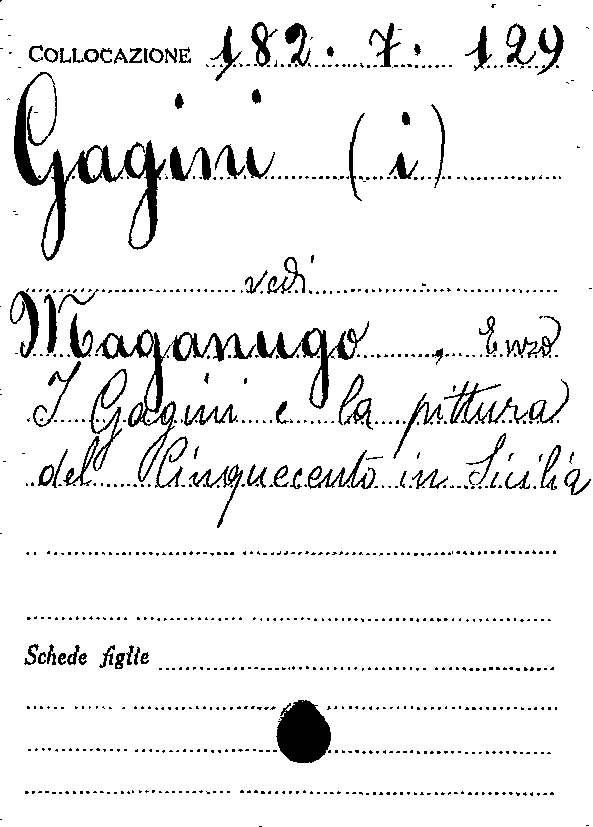 COLLOCAZIONE 182.7.129
Gagini (i)
vedi
Maganugo, Enzo
I Gagini e la pittura
del Cinquecento in Sicilia
Schede figlie